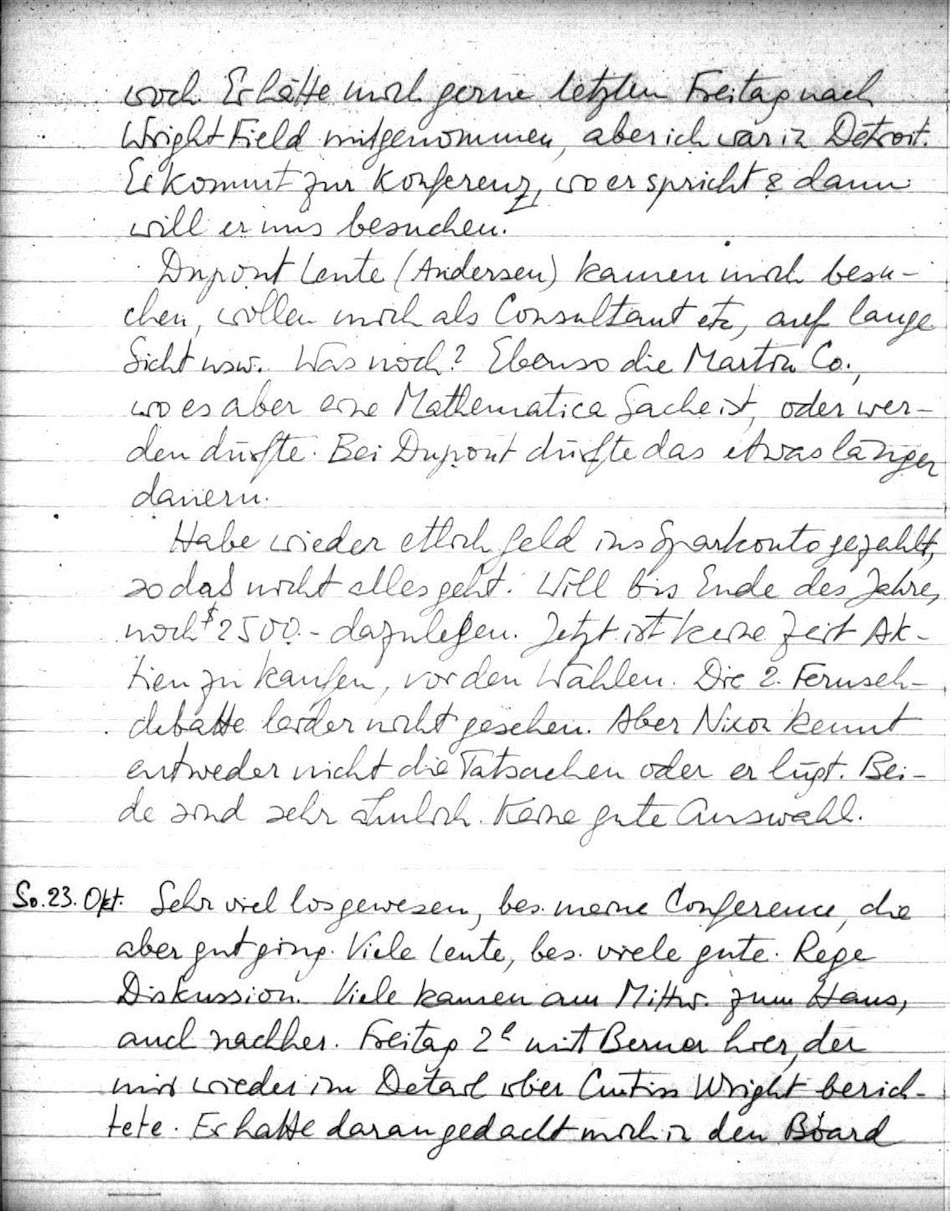 noch. Er hätte mich gerne letzten Freitag nach
Wright Field mitgenommen, aber ich war in Detroit.
Er kommt zur Konferenz, wo er spricht & dann
will er uns besuchen.
Dupont Leute (Andersen) kamen mich besu-
chen, wollen mich als Consultant etc, auf lange
Sicht usw. Was noch? Ebenso die Martin Co.,
wo es aber eine Mathematica Sache ist, oder wer-
den dürfte. Bei Dupont dürfte das etwas länger
dauern.
Habe wieder etlich Geld ins Sparkonto gezahlt,
so daß nicht alles geht. Will bis Ende des Jahres
noch $2500.- dazulegen. Jetzt ist keine Zeit Ak-
tien zu kaufen, vor den Wahlen. Die 2. Fernseh-
debatte leider nicht gesehen. Aber Nixon kennt
entweder nicht die Tatsachen oder er lügt. Bei-
de sind sehr ähnlich. Keine gute Auswahl.
So. 23. Okt. Sehr viel los gewesen, bes. meine Conference, die
aber gut ging. Viele Leute, bes. viele gute. Rege
Diskussion. Viele kamen am Mittw. zum Haus,
auch nachher. Freitag 2h mit Berner hier, der
mir wieder im Detail über Curtiss Wright berich-
tete. Er hatte daran gedacht mich in den Board